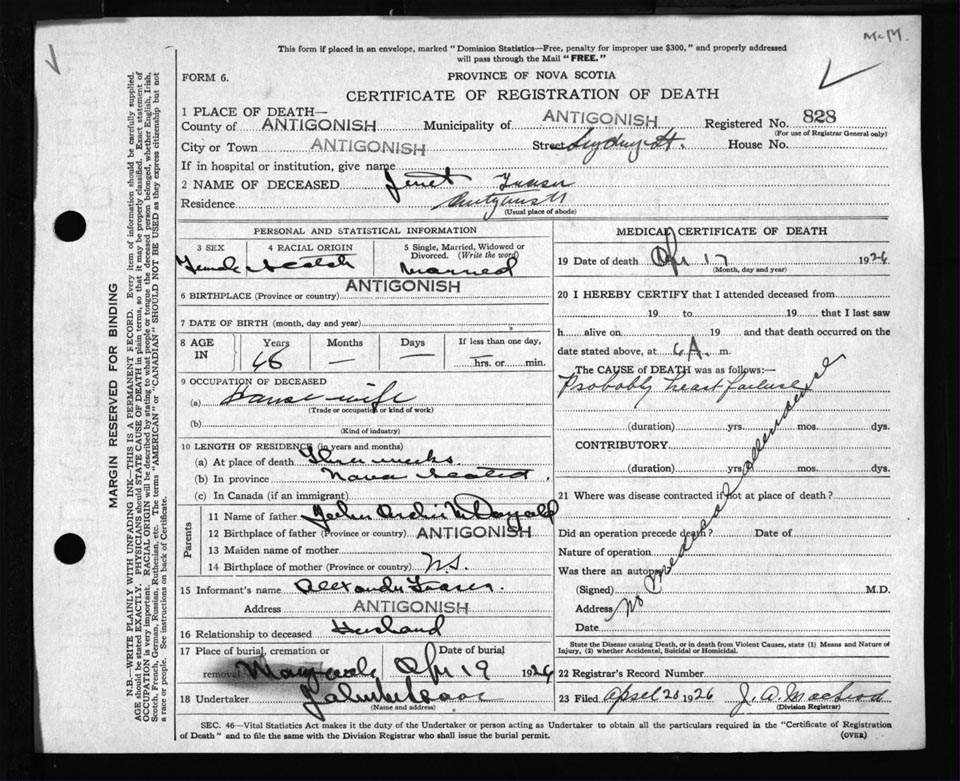 McM.
This form if placed in an envelope, marked "Dominion Statistics—Free, penalty for improper use $300," and properly addressed
will pass through the Mail "FREE."
FORM 6.
PROVINCE OF NOVA SCOTIA
CERTIFICATE OF REGISTRATION OF DEATH
1 PLACE OF DEATH—
County of ANTIGONISH Municipality of ANTIGONISH Registered No. 828
(For use of Registrar General only)
City or Town ANTIGONISH Street Sydney St. House No.
If in hospital or institution, give name
2 NAME OF DECEASED Janet Fraser
Residence Antigonish
(Usual place of abode)
PERSONAL AND STATISTICAL INFORMATION
3 SEX 4 RACIAL ORIGIN 5 Single, Married, Widowed or
Divorced. (Write the word)
Female Scotch Married
6 BIRTHPLACE (Province or country) ANTIGONISH
7 DATE OF BIRTH (month, day and year)
8 AGE IN Years Months Days If less than one day,
— — hrs. or min.
9 OCCUPATION OF DECEASED
(a) House wife
(Trade or occupation or kind of work)
(b)
(Kind of industry)
10 LENGTH OF RESIDENCE (in years and months)
(a) At place of death Three weeks.
(b) In province Nova Scotia.
(c) In Canada (if an immigrant)
Parents
11 Name of father John Archie McDonald
12 Birthplace of father (Province or country) ANTIGONISH
13 Maiden name of mother
14 Birthplace of mother (Province or country) N.S.
15 Informant's name Alexander Fraser.
Address ANTIGONISH
16 Relationship to deceased Husband
17 Place of burial, cremation or Date of burial
removal Apr 19 1926
18 Undertaker
(Name and address)
MEDICAL CERTIFICATE OF DEATH
19 Date of death Apr 17 1926
(Month, day and year)
20 I HEREBY CERTIFY that I attended deceased from
19 to 19 that I last saw
h alive on 19 and that death occurred on
date stated above, at 6 A. m.
The CAUSE of DEATH was as follows:—
Probably heart failure
(duration) yrs. mos. dys.
CONTRIBUTORY.
(duration) yrs. mos. dys.
21 Where was disease contracted if not at place of death?
Did an operation precede death? Date of
Nature of operation
Was there an autopsy
(Signed) M.D.
Address
Date
No medical attendance
State the Disease causing Death, or in death from Violent Causes, state (1) Means and Nature of
Injury, (2) whether Accidental, Suicidal or Homicidal.
22 Registrar's Record Number
23 Filed April 20 1926 J. A. MacLeod
(Division Registrar)
SEC. 46—Vital Statistics Act makes it the duty of the Undertaker or person acting as Undertaker to obtain all the particulars required in the "Certificate of Registration
of Death" and to file the same with the Division Registrar who shall issue the burial permit.
(OVER)
MARGIN RESERVED FOR BINDING
N.B.—WRITE PLAINLY WITH UNFADING INK—THIS IS A PERMANENT RECORD. Every item of information should be carefully supplied.
AGE should be stated EXACTLY. PHYSICIANS should STATE CAUSE OF DEATH in plain terms, so that it may be properly classified. Exact statement of
OCCUPATION is very important. RACIAL ORIGIN will be described by stating to what people or tongue the deceased person belonged, whether English, Irish,
Scotch, French, German, Russian, Ruthenian, etc. The terms "AMERICAN" or "CANADIAN" SHOULD NOT BE USED as they express citizenship but not
a race or people. See instructions on back of Certificate.